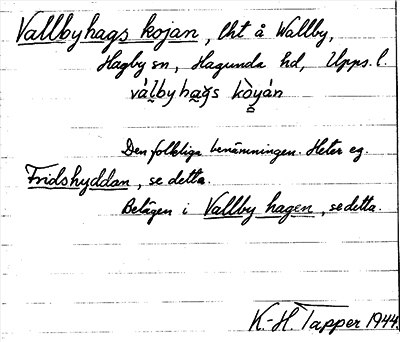 Vallbyhags kojan, lht å Wallby,
Hagby sn, Hagunda hd, Upps. l.
válbyhag̀s kòyán
Den folkliga benämningen. Heter eg.
Fridshyddan, se detta.
Belägen i Vallby hagen, se detta.
K.-H. Tapper 1944.